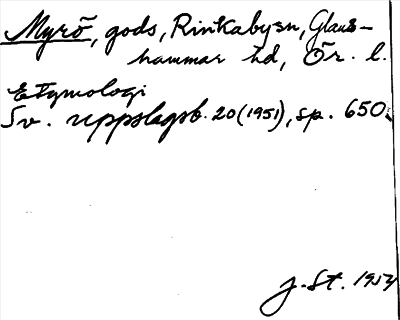 Myrö, gods, Rinkabysn, Glans-
hammar hd, Ör. l.
Etymologi
Sv. uppslagsb. 20(1951), sp. 650.
J. St. 1954